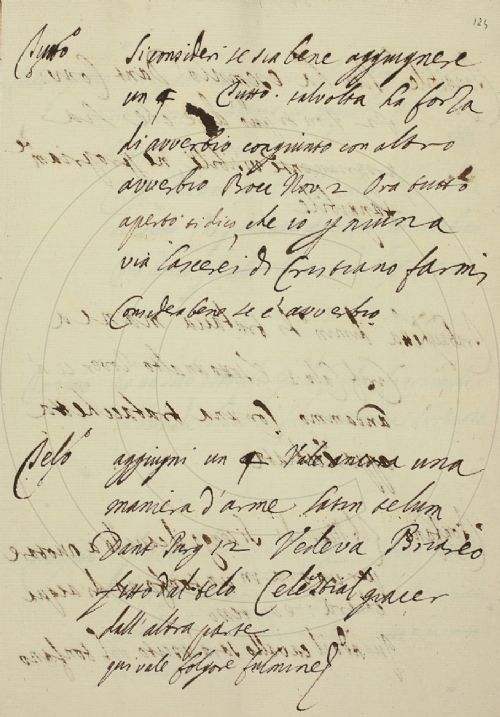 124
Tutto Si consideri se sia bene aggiugnere
un § Tutto talvolta ha forza
di avverbio congiunto con altro
avverbio Bocc Nov 2 Ora tutto
aperto ti dico, che io p niuna
via lascerei di Cristiano farmi
Consideri bene se è avverbio
Telo aggiugni un § Vale ancora una
maniera d'arme latin telum
Dant Purg 12 Vedeva Briareo
fitto dal telo Celestial giacer
dall'altra parte
qui vale folgore fulmine